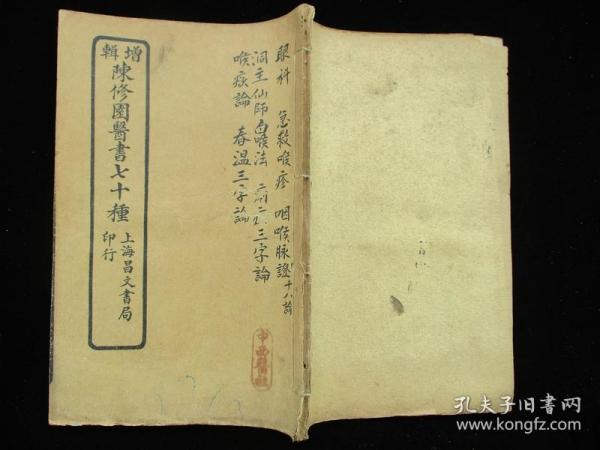 增輯
陳修園醫書七十種
上海昌文書局
印行
眼科 急救喉疹 咽喉脉證
洞主仙師白喉法 三字論
喉痧論 春温三字
中西醫社
孔夫子旧书网
www.kongfz.com